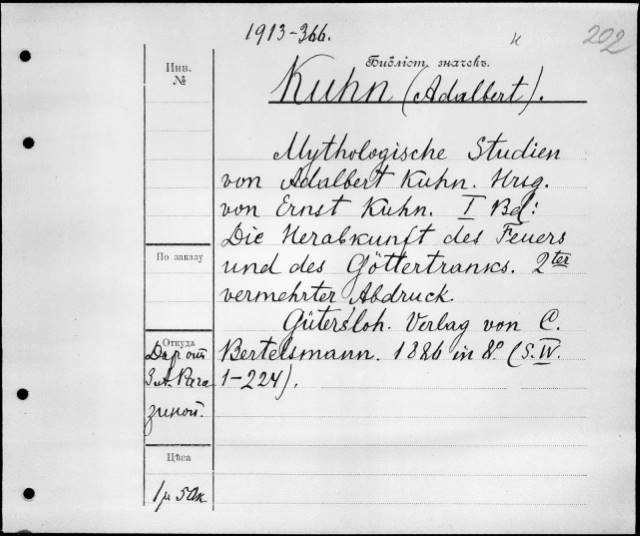 1913-366.
202
Инв.
№
Библіот. значекъ.
Kuhn (Adalbert).
Mythologische Studien
von Adalbert Kuhn. Hrsg.
von Ernst Kuhn. I Bd:
Die Herabkunft des Feuers
По заказу
und des Göttertranks. 2ter
vermehrter Abdruck.
Gütersloh. Verlag von C.
Откуда
Bertelsmann. 1886 in 8º. (S. IV.
1-224).
Даръ от
зиной.
Цѣна